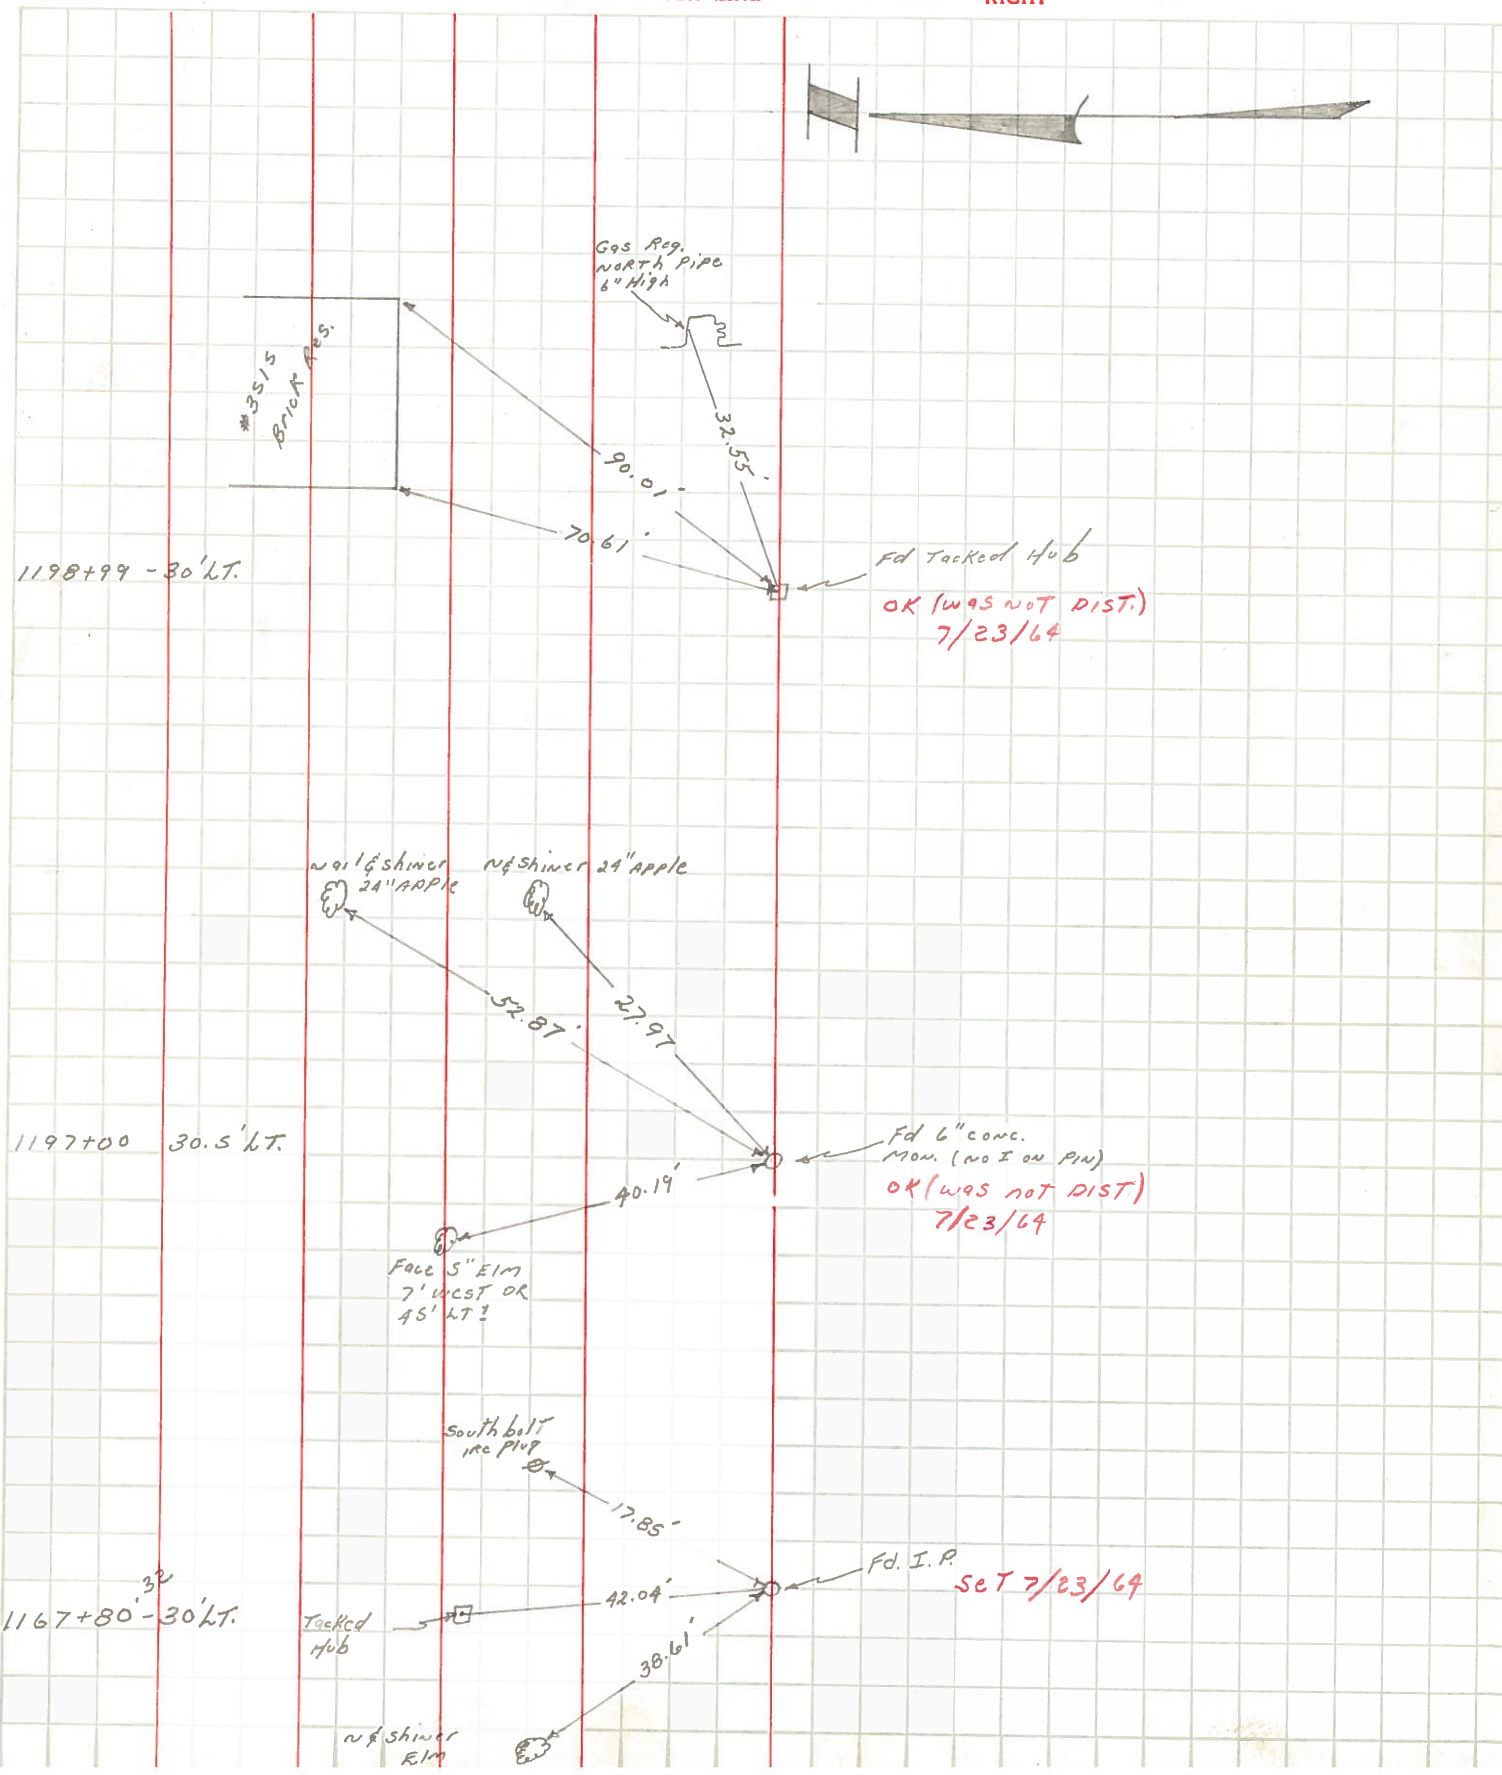 RIGHT
Gas Reg.
NORTH PIPE
6" High
#3515
Brick Res.
32.55'
90.01'
70.61'
1198+99 - 30' LT.
Fd Tacked Hub
OK (WAS NOT DIST.)
7/23/64
Nail & Shiner
24" APPLE
N & Shiner 24" APPLE
52.87'
27.97
1197+00 30.5' LT.
Fd 6" CONC.
MON. (NO I ON PIN)
OK (WAS NOT DIST)
7/23/64
40.19'
Face 5" ELM
7' WEST OR
45' LT ±
South bolt
17.85'
Fd. I.P.
SET 7/23/64
32
1167+80' - 30' LT.
Tacked
Hub
42.04'
38.61'
N & Shiner
Elm